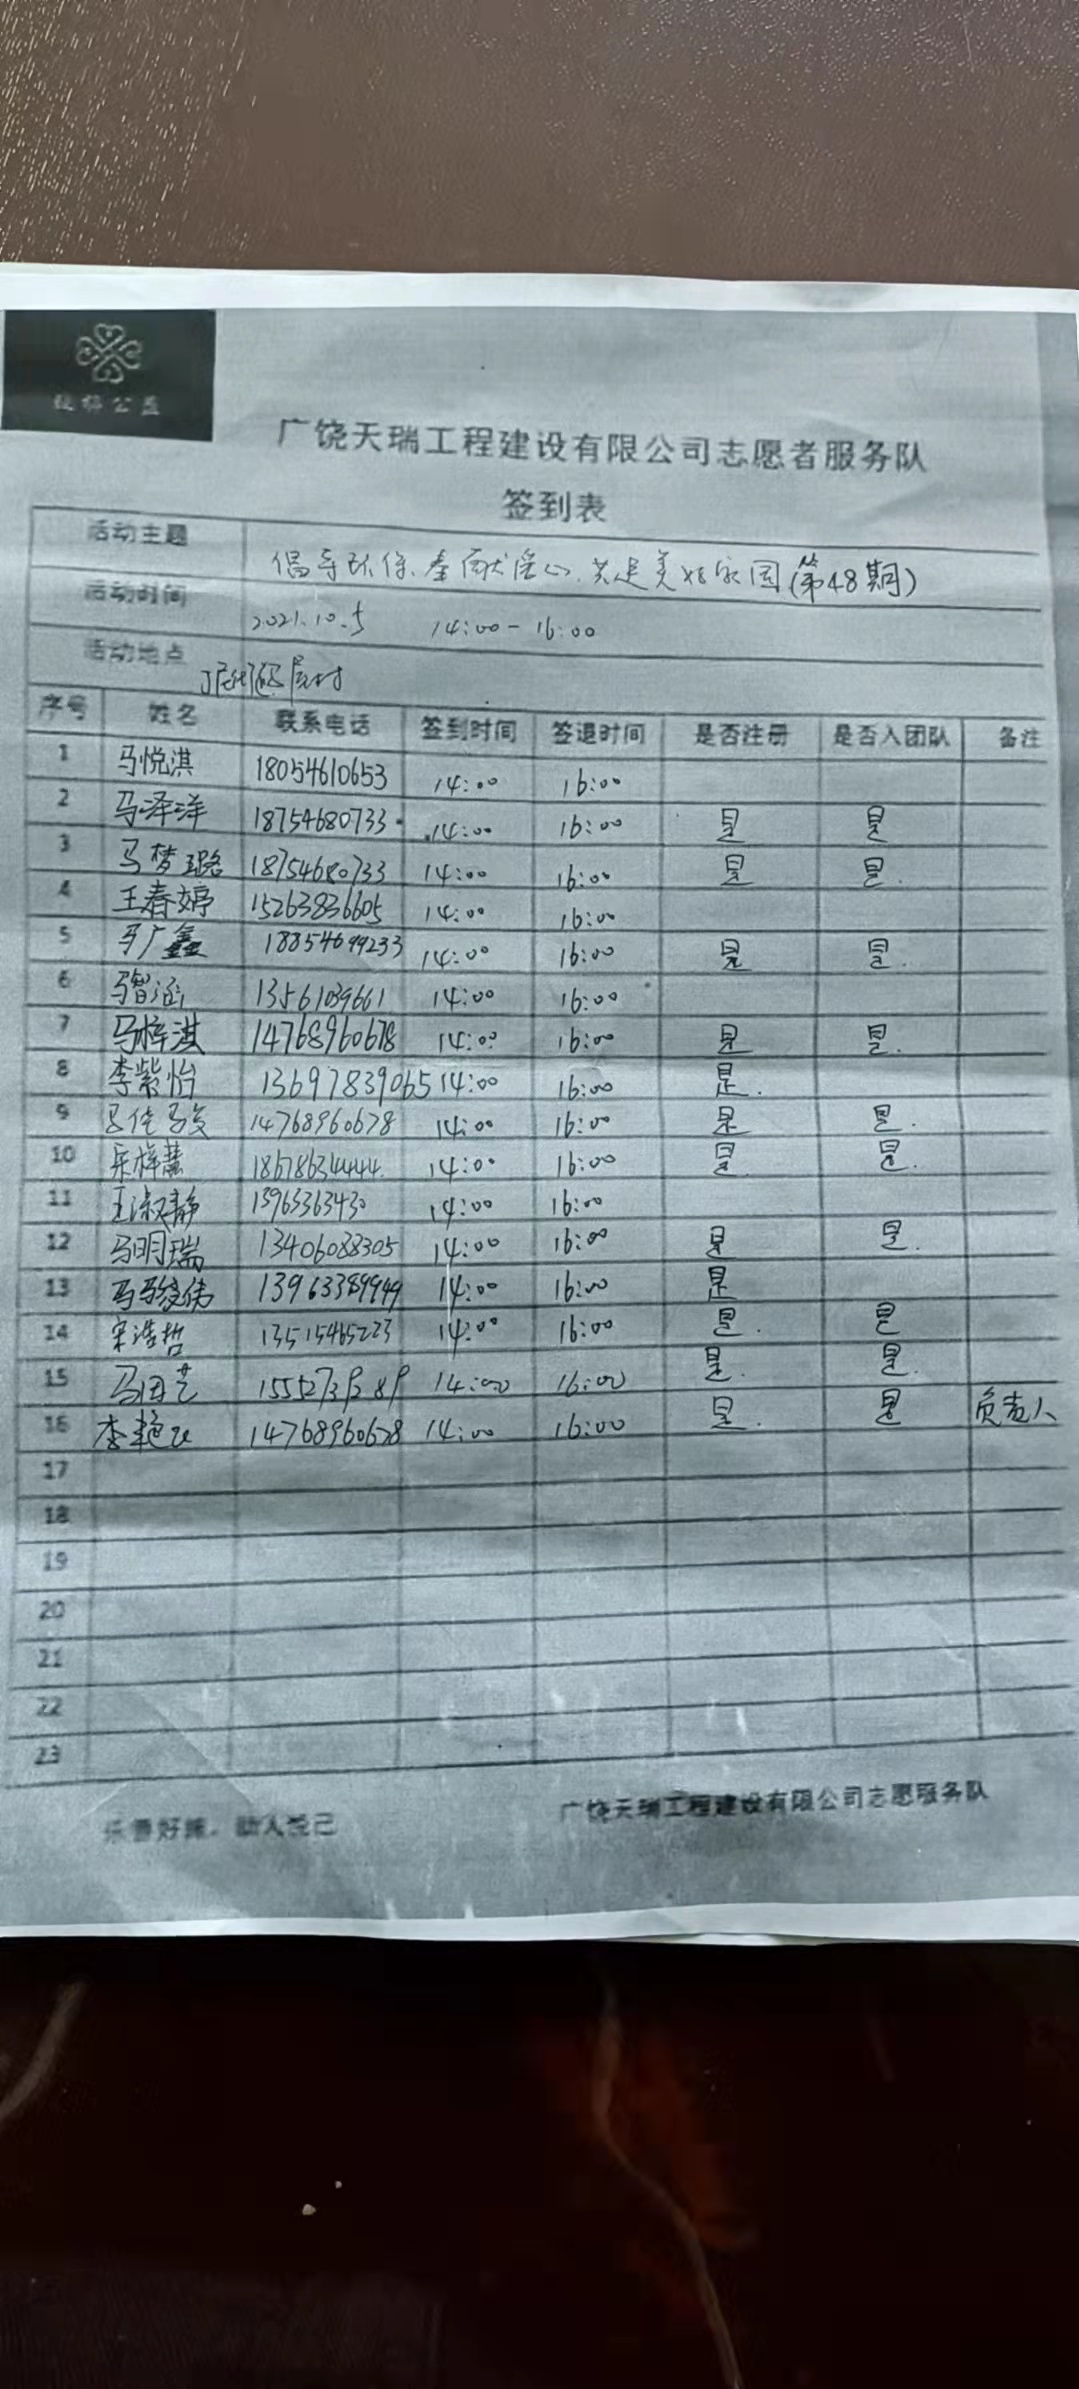 公益
广饶天瑞工程建设有限公司志愿者服务队
签到表
活动主题 倡导环保、奉献爱心、共建美好家园(第48期)
活动时间 2021.10.5 14:00-16:00
活动地点
序号 姓名 联系电话 签到时间 签退时间 是否注册 是否入团队 备注
1 马悦淇 18054610653 14:00 16:00
2 马泽洋 18754680733 14:00 16:00 是 是
3 马梦璐 18754680733 14:00 16:00 是 是.
4 王春婷 15263836605 14:00 16:00
5 马广鑫 18854699233 14:00 16:00 是 是.
6 马智涵 13561039661 14:00 16:00
7 马梓淇 14768960678 14:00 16:00 是 是.
8 李紫怡 13697839065 14:00 16:00 是.
9 14768960678 14:00 16:00 是 是.
10 梓慧 18678634444. 14:00 16:00 是. 是.
11 王淑静 13963363430 14:00 16:00
12 马明瑞 13406088305 14:00 16:00 是 是.
13 马骏伟 13963389949 14:00 16:00 是
14 宋浩哲 13515465223 14:00 16:00 是. 是
15 马团艺 14:00 16:00 是. 是.
16 李艳 14768960678 14:00 16:00 是. 是 负责人
17
18
19
20
21
22
23
乐善好施，助人悦己 广饶天瑞工程建设有限公司志愿服务队